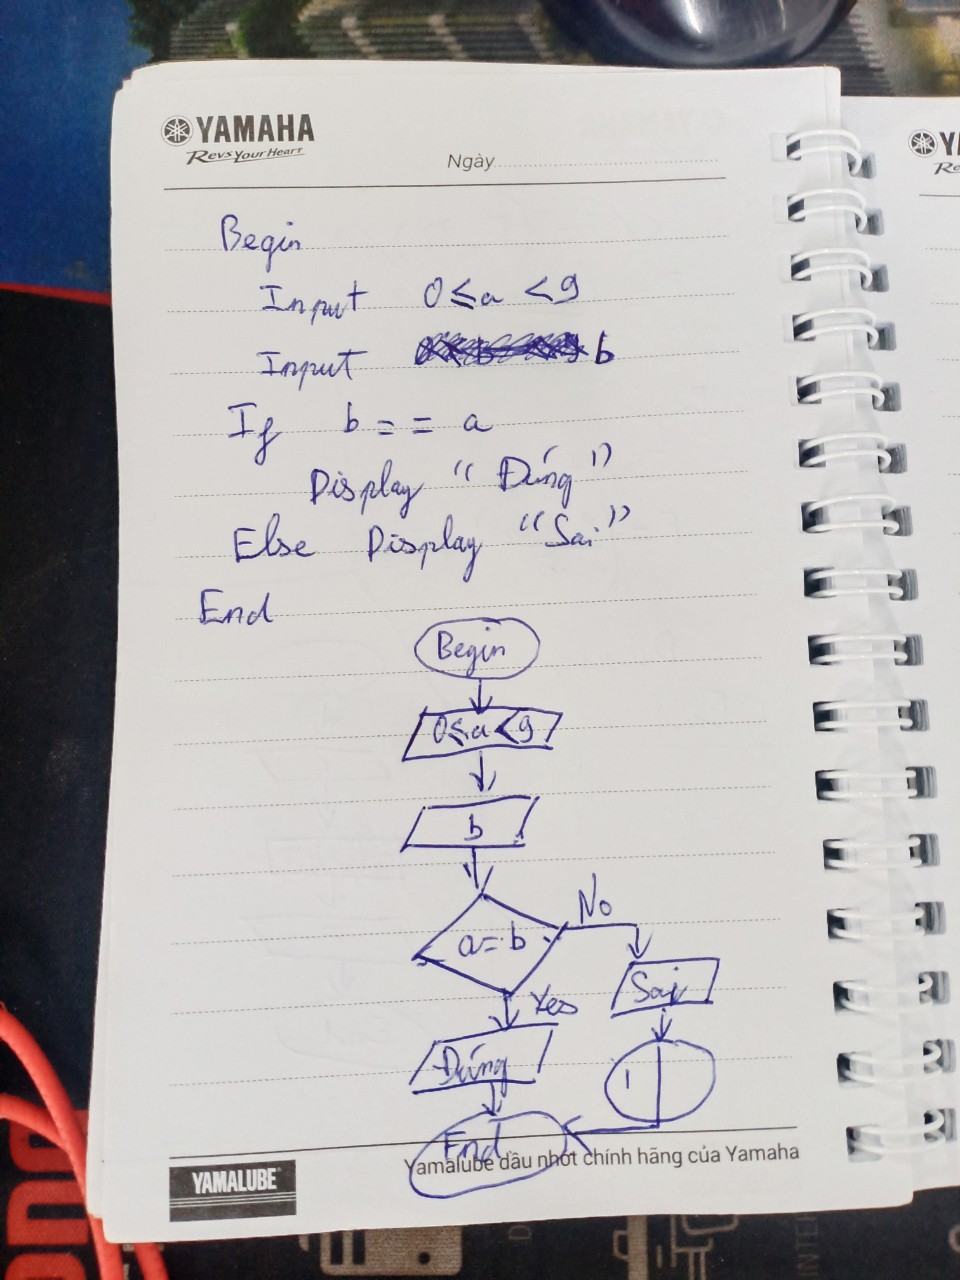 YAMAHA
Revs Your Heart
Ngày
Begin
Input 0 ≤ a < 9
Input b
If b == a
Display "Đúng"
Else Display "Sai"
End
Begin
0 ≤ a < 9
b
a = b
No
Yes
Sai
Đúng
End
Yamalube dầu nhớt chính hãng của Yamaha
YAMALUBE